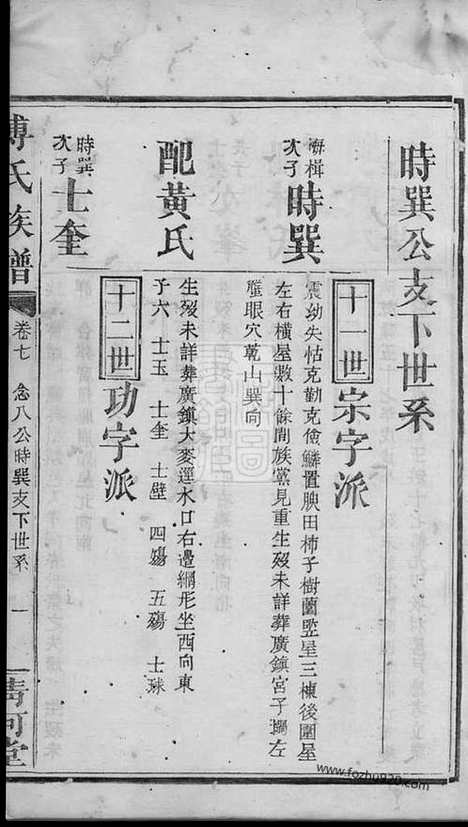 時巽公支下世系
十一世 宗字派
楫次子 時巽
震幼失怙克勤克儉鱗置腴田柿子樹薗監屋三棟後圍屋
左右橫屋數十餘間族黨見重生歿未詳葬廣鎮宮子壩左
壟眼穴乾山巽向
配黃氏
生歿未詳葬廣鎮大麥逕水口右邊綱形坐西向東
子六 士玉 士奎 士壁 四殤 五殤 士球
十二世 功字派
時巽次子 士奎
傅氏族譜 卷七 念八公時巽支下世系 一 清河堂
www.fozhu920.com